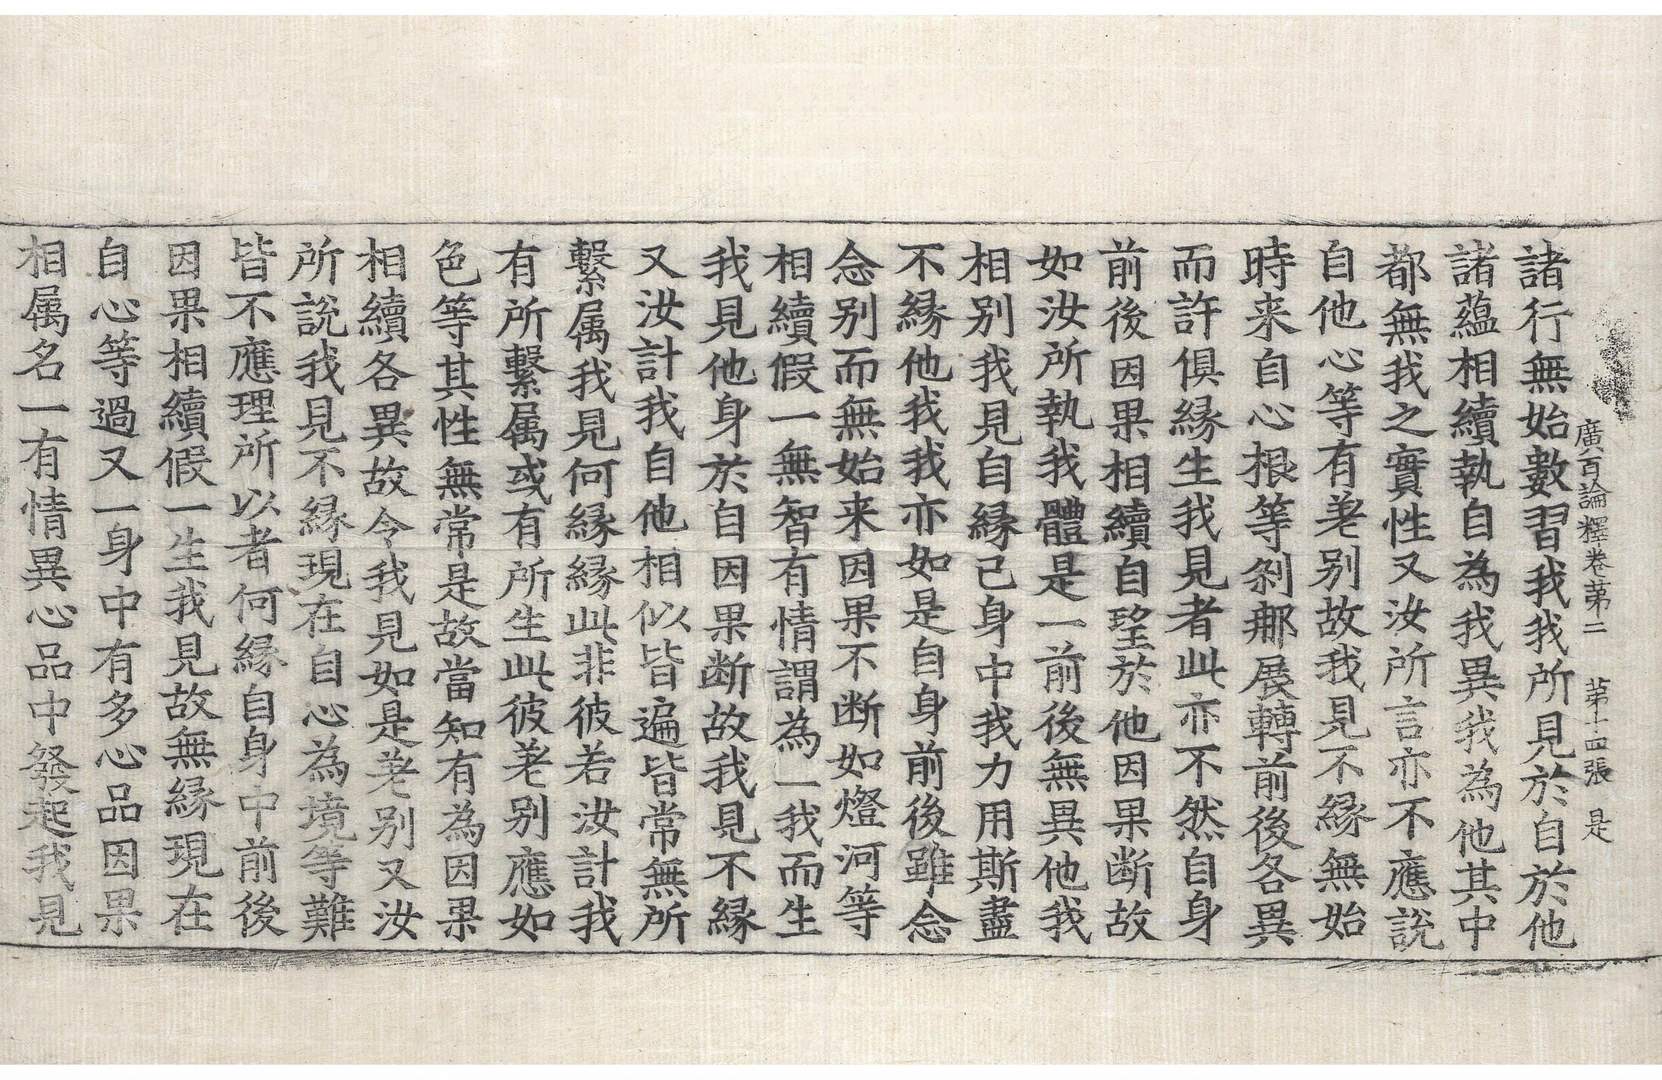 廣百論釋卷第二　第十四張　是
諸行無始數習我我所見於自於他
諸蘊相續執自為我異我為他其中
都無我之實性又汝所言亦不應說
自他心等有差别故我見不縁無始
時来自心根等剎那展轉前後各異
而許俱縁生我見者此亦不然自身
前後因果相續自望於他因果断故
如汝所執我體是一前後無異他我
相别我見自縁己身中我力用斯盡
不縁他我我亦如是自身前後雖念
念别而無始来因果不断如燈河等
相續假一無智有情謂為一我而生
我見他身於自因果断故我見不縁
又汝計我自他相似皆遍皆常無所
繫属我見何縁縁此非彼若汝計我
有所繫属或有所生此彼差别應如
色等其性無常是故當知有為因果
相續各異故令我見如是差别又汝
所說我見不縁現在自心為境等難
皆不應理所以者何縁自身中前後
因果相續假一生我見故無縁現在
自心等過又一身中有多心品因果
相属名一有情異心品中發起我見